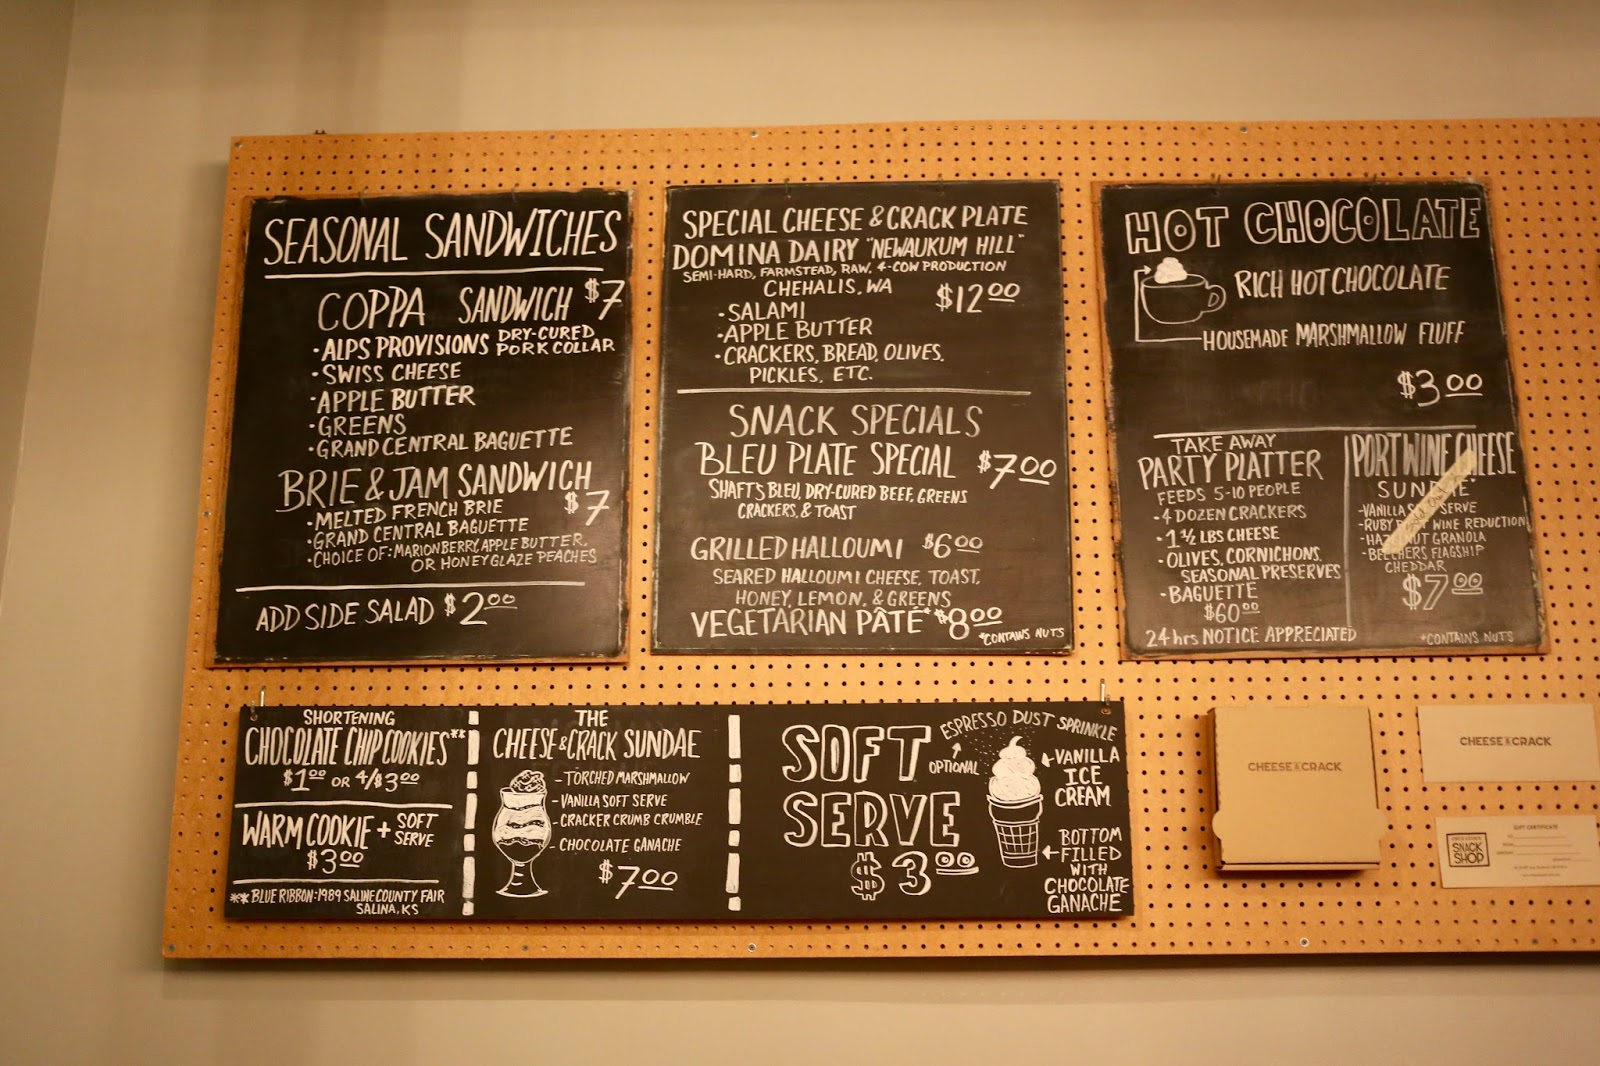 SEASONAL SANDWICHES
COPPA SANDWICH $7
• ALPS PROVISIONS DRY-CURED PORK COLLAR
• SWISS CHEESE
• APPLE BUTTER
• GREENS
• GRAND CENTRAL BAGUETTE
BRIE & JAM SANDWICH
$7
• MELTED FRENCH BRIE
• GRAND CENTRAL BAGUETTE
• CHOICE OF: MARIONBERRY, APPLE BUTTER,
OR HONEY GLAZE PEACHES
ADD SIDE SALAD $2.00
SPECIAL CHEESE & CRACK PLATE
DOMINA DAIRY "NEWAUKUM HILL"
SEMI-HARD, FARMSTEAD, RAW, 4-COW PRODUCTION
CHEHALIS, WA
$12.00
• SALAMI
• APPLE BUTTER
• CRACKERS, BREAD, OLIVES,
PICKLES, ETC.
SNACK SPECIALS
BLEU PLATE SPECIAL $7.00
SHAFT'S BLEU, DRY-CURED BEEF, GREENS
CRACKERS, & TOAST
GRILLED HALLOUMI $6.00
SEARED HALLOUMI CHEESE, TOAST,
HONEY, LEMON, & GREENS
VEGETARIAN PÂTÉ* $8.00
*CONTAINS NUTS
HOT CHOCOLATE
RICH HOT CHOCOLATE
HOUSEMADE MARSHMALLOW FLUFF
$3.00
TAKE AWAY
PARTY PLATTER
FEEDS 5-10 PEOPLE
• 4 DOZEN CRACKERS
• 1 ½ LBS CHEESE
• OLIVES, CORNICHONS,
SEASONAL PRESERVES
• BAGUETTE
$60.00
24 hrs NOTICE APPRECIATED
PORT WINE CHEESE
SUNDAE*
- VANILLA SERVE
- RUBY WINE REDUCTION
- HAZELNUT GRANOLA
- BEECHERS FLAGSHIP
CHEDDAR
$7.00
*CONTAINS NUTS
SHORTENING
CHOCOLATE CHIP COOKIES**
$1.00 OR 4/$3.00
WARM COOKIE + SOFT SERVE
$3.00
** BLUE RIBBON: 1989 SALINE COUNTY FAIR
SALINA, KS
THE
CHEESE & CRACK SUNDAE
- TORCHED MARSHMALLOW
- VANILLA SOFT SERVE
- CRACKER CRUMB CRUMBLE
- CHOCOLATE GANACHE
$7.00
SOFT
SERVE
$3.00
ESPRESSO DUST SPRINKLE
OPTIONAL
VANILLA
ICE
CREAM
BOTTOM
FILLED
WITH
CHOCOLATE
GANACHE
CHEESE & CRACK
CHEESE & CRACK
GIFT CERTIFICATE
SNACK
SHOP